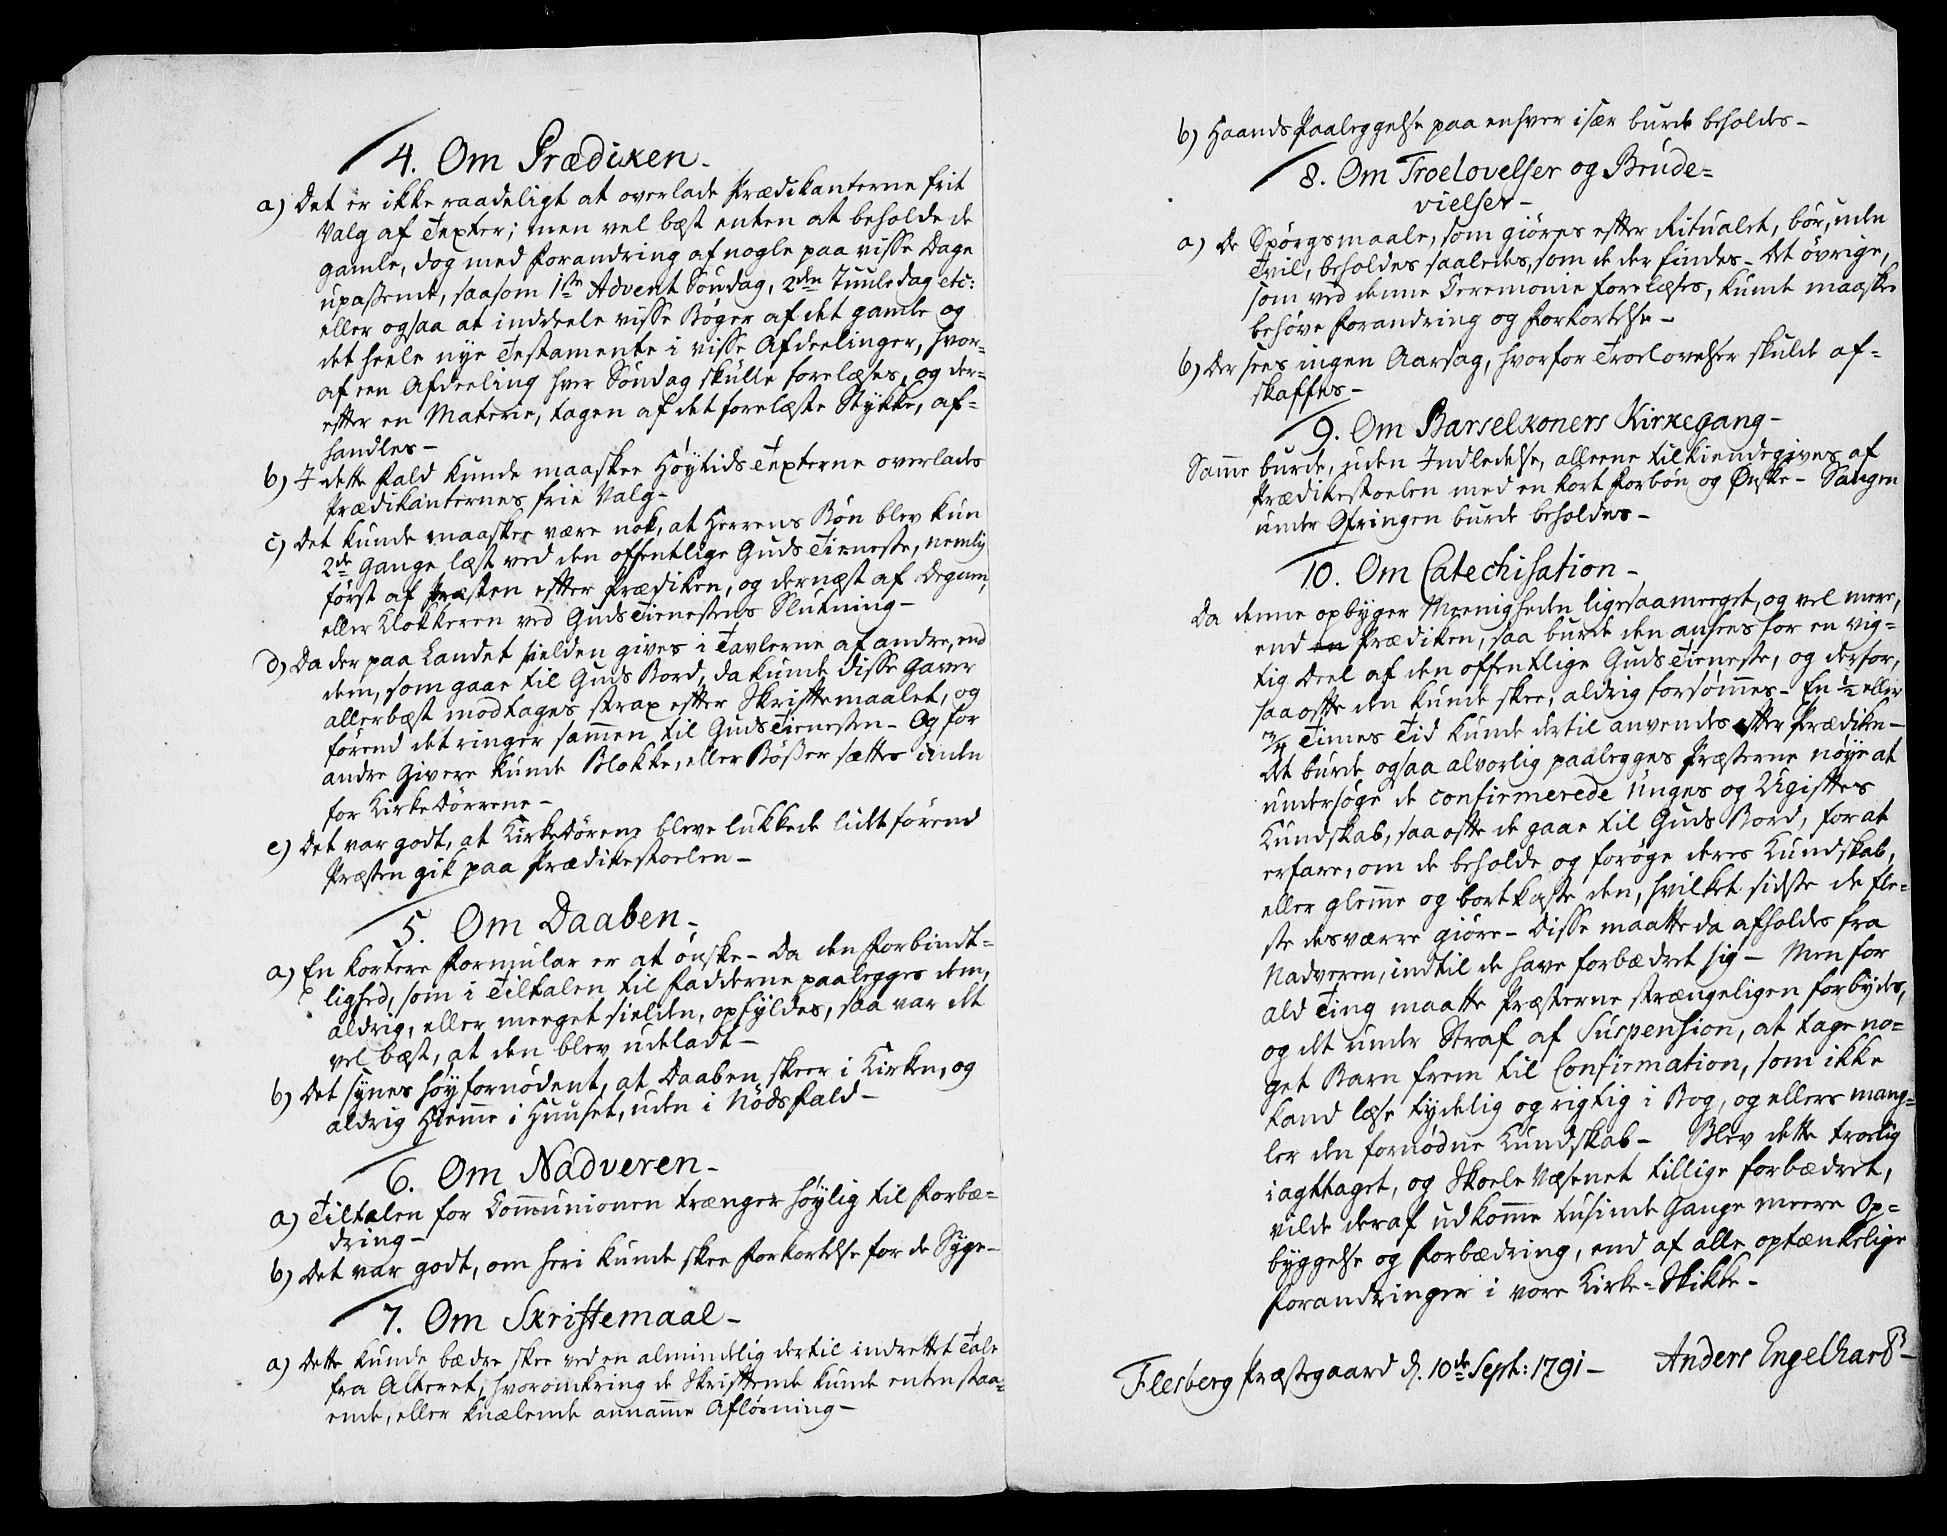 4. Om Prædiken_
a) Det er ikke raadeligt at overlade Prædikanterne frit
Valg af Texter; men vel bæst enten at beholde de
gamle, dog med Forandring af nogle paa visse Dage
upassende, saasom 1ste Advent Søndag, 2den Juuledag etc:
eller ogsaa at inddeele visse Bøger af det gamle og
det heele nye Testamente i visse Afdeelinger, hvor=
af een Afdeeling hver Søndag skulle forelæses, og der=
efter en Materie, tagen af det forelæste Stykke, af=
handles_
b) I dette Fald kunde maaskee Høytids Texterne overlades
Prædikanternes frie Valg_
c) Det kunde maaskee være nok, at Herrens Bøn blev kun
2de Gange læst ved den offentlige Guds Tieneste, nemlig
først af Præsten efter Prædiken, og dernæst af Degnen,
eller Klokkeren ved Guds Tienestens Slutning_
d) Da der paa Landet sielden gives i Tavlerne af andre, end
dem, som gaae til Guds Bord, da kunde disse Gaver
allerbæst modtages strax efter Skriftemaalet, og
førend det ringer sammen til Guds Tienesten_ Og for
andre Givere kunde Blokke, eller Bøsser sættes inden
for Kirkedørrene_
e) Det var godt, at Kirkedørene bleve lukkede lidt førend
Præsten gik paa Prædikestoelen_
5. Om Daaben_
a) En kortere Formular er at ønske_ Da den Forbindt=
lighed, som i Tiltalen til Fadderne paalegges dem,
aldrig, eller meeget sielden, opfyldes, saa var det
vel bæst, at den blev udeladt_
b) Det synes høyfornødent, at Daaben skeer i Kirken, og
aldrig hiemme i Huuset, uden i Nøds Fald_
6. Om Nadveren_
a) Tiltalen for Communionen trænger høylig til Forbæ=
dring_
b) Det var godt, om heri kunde skee Forkortelse for de Syge_
7. Om Skriftemaal_
a) Dette kunde bædre skee ved en almindelig dertil indrettet Tale
fra Alteret, hvoromkring de Skriftende kunde enten staa=
ende, eller knælende annamme Afløsning_
b) Haands Paaleggelse paa enhver især burde beholdes_
8. Om Troelovelser og Brude=
vielser_
a) De Spørgsmaale, som giøres efter Ritualet, bør, uden
Tvil, beholdes saaledes, som de der findes_ Det øvrige,
som ved denne Ceremonie forelæses, kunde maaskee
behøve Forandring og Forkortelse_
b) Der sees ingen Aarsag, hvorfor Troelovelser skulde af=
skaffes_
9. Om Barselkoners Kirkegang_
Samme burde, uden Indledelse, alleene tilkiendegives af
Prædikestoelen med en kort Forbøn og Ønske_ Sangen
under Ofringen burde beholdes_
10. Om Catechisation_
Da denne opbyger Meenigheden ligesaameeget, og vel mere,
end en Prædiken, saa burde den ansees for en vig=
tig Deel af den offentlige Guds Tieneste, og derfor,
saa ofte den kunde skee, aldrig forsømmes_ En ½ eller
¾ Times Tid kunde dertil anvendes efter Prædiken_
Det burde ogsaa alvorlig paalegges Præsterne nøye at
undersøge de confirmerede Unges og Ugiftes
Kundskab, saa ofte de gaae til Guds Bord, for at
erfare, om de beholde og forøge deres Kundskab,
eller glemme og bortkaste den, hvilket sidste de fle=
ste desværre giøre_ Disse maatte da afholdes fra
Nadveren, indtil de have forbædret sig_ Men for
ald Ting maatte Præsterne strængeligen forbydes,
og det under Straf af Suspension, at tage no=
get Barn frem til Confirmation, som ikke
kand læse tydelig og rigtig i Bog, og ellers mang=
ler den fornødne Kundskab_ Blev dette troelig
iagttaget, og Skoele Væsenet tillige forbædret,
vilde deraf udkomme tusinde Gange meere Op=
byggelse og Forbædring, end af alle optænkelige
Forandringer i vore Kirke=Skikke_
Flesberg Præstegaard d. 10de Sept: 1791_ Anders Engelhardt_